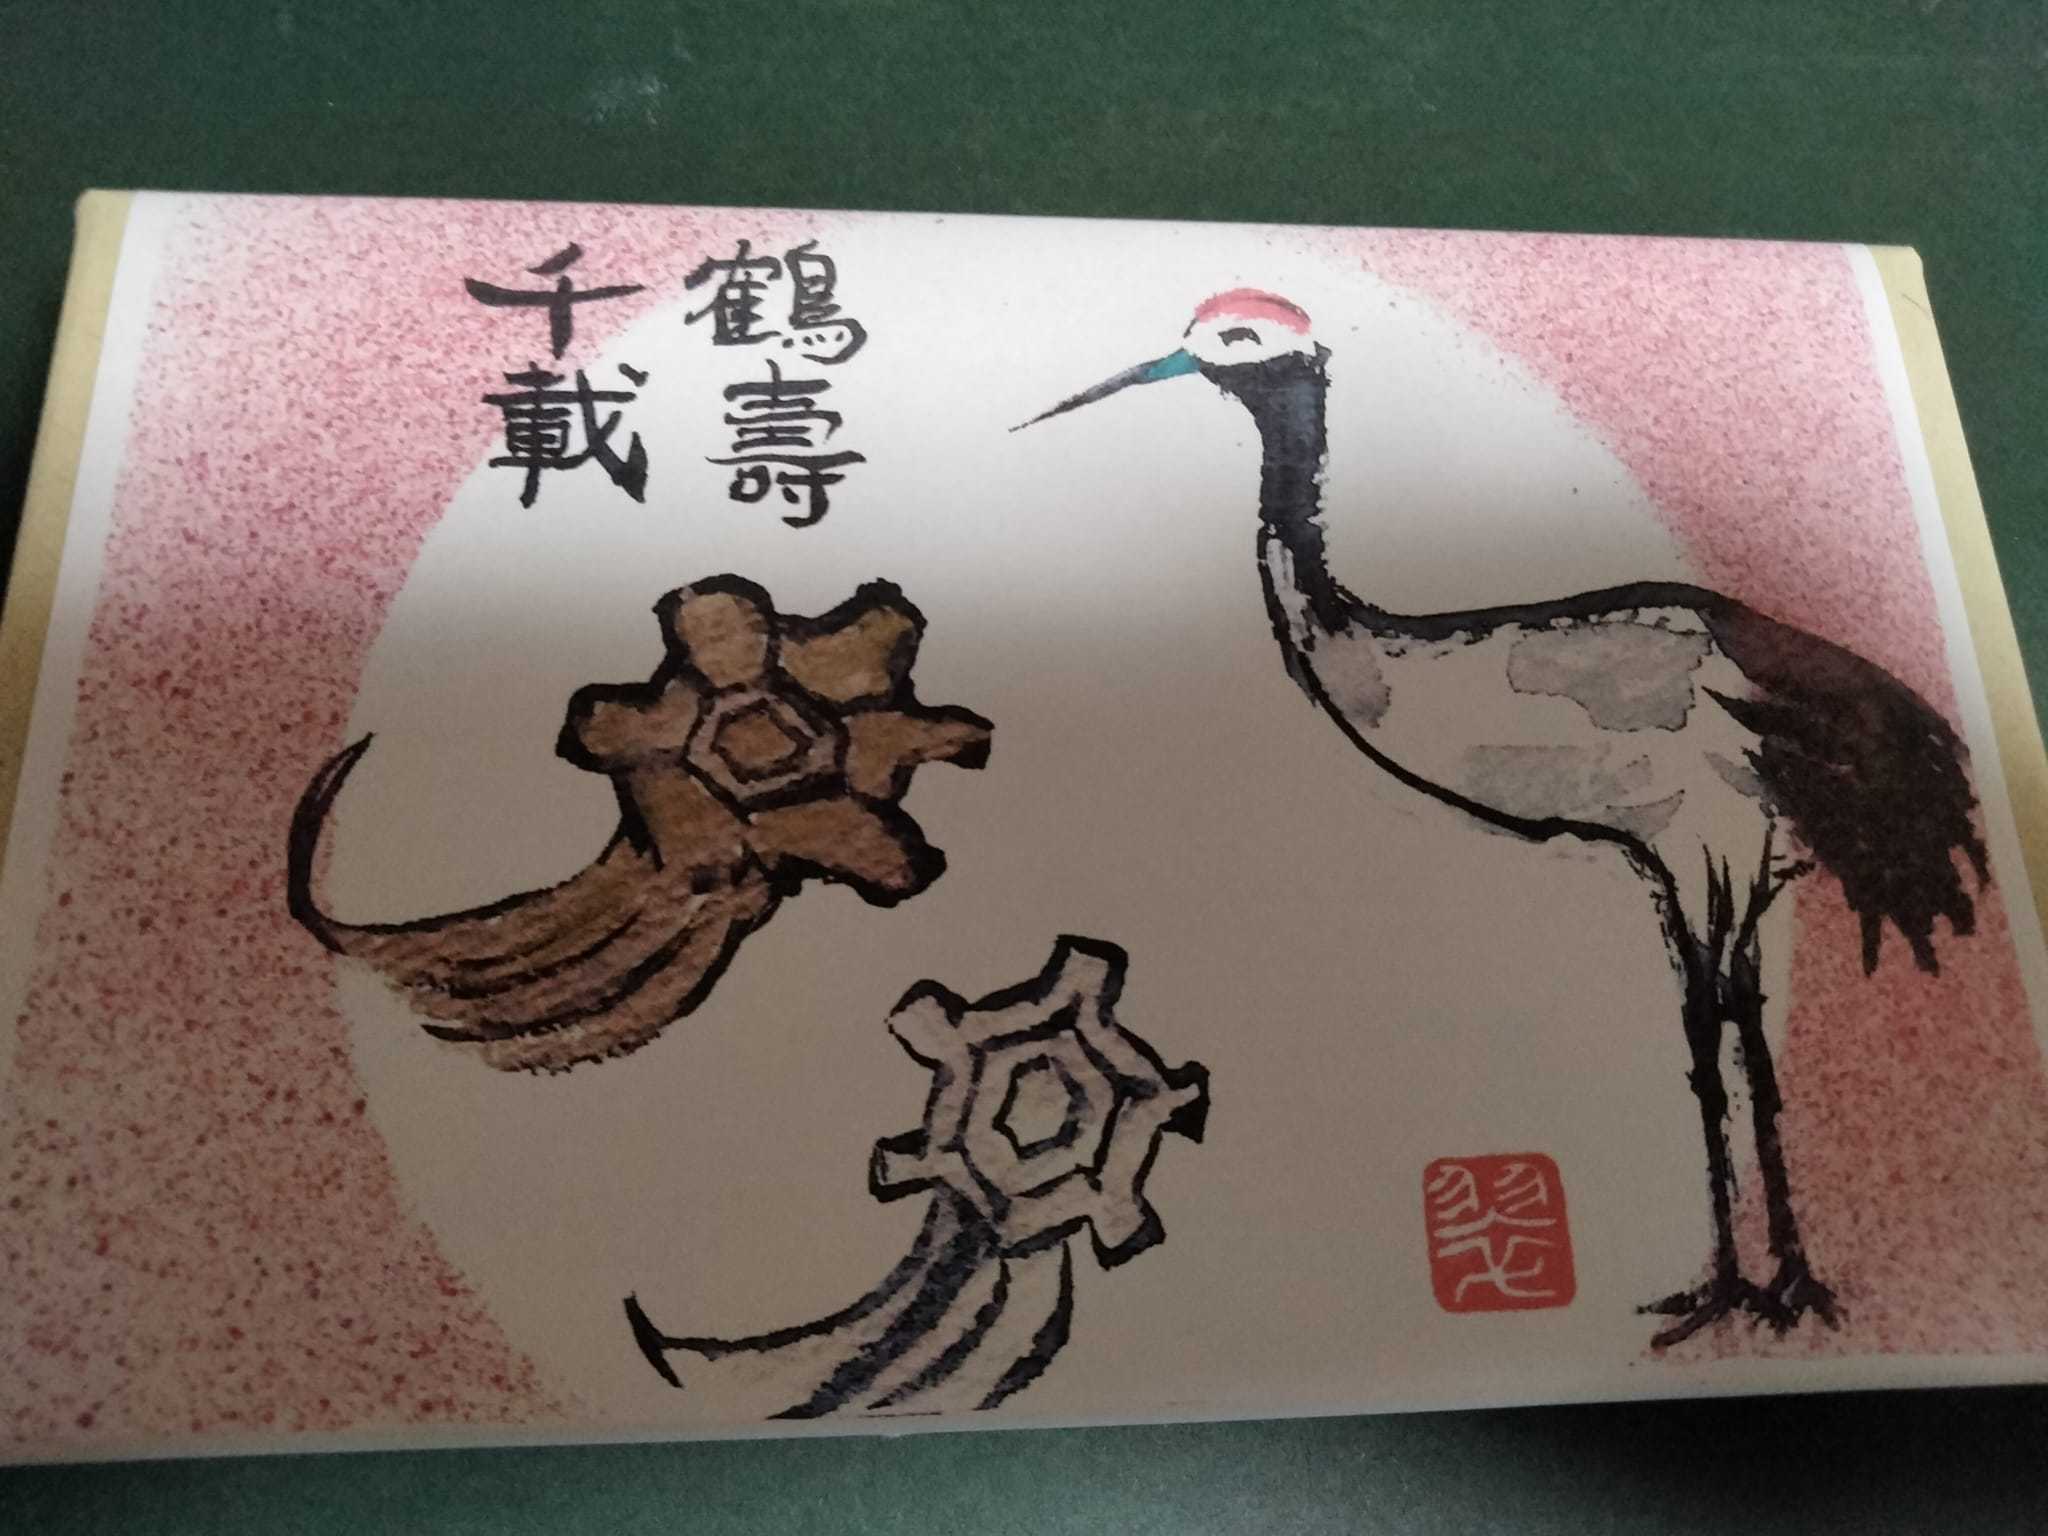 鶴壽
千載